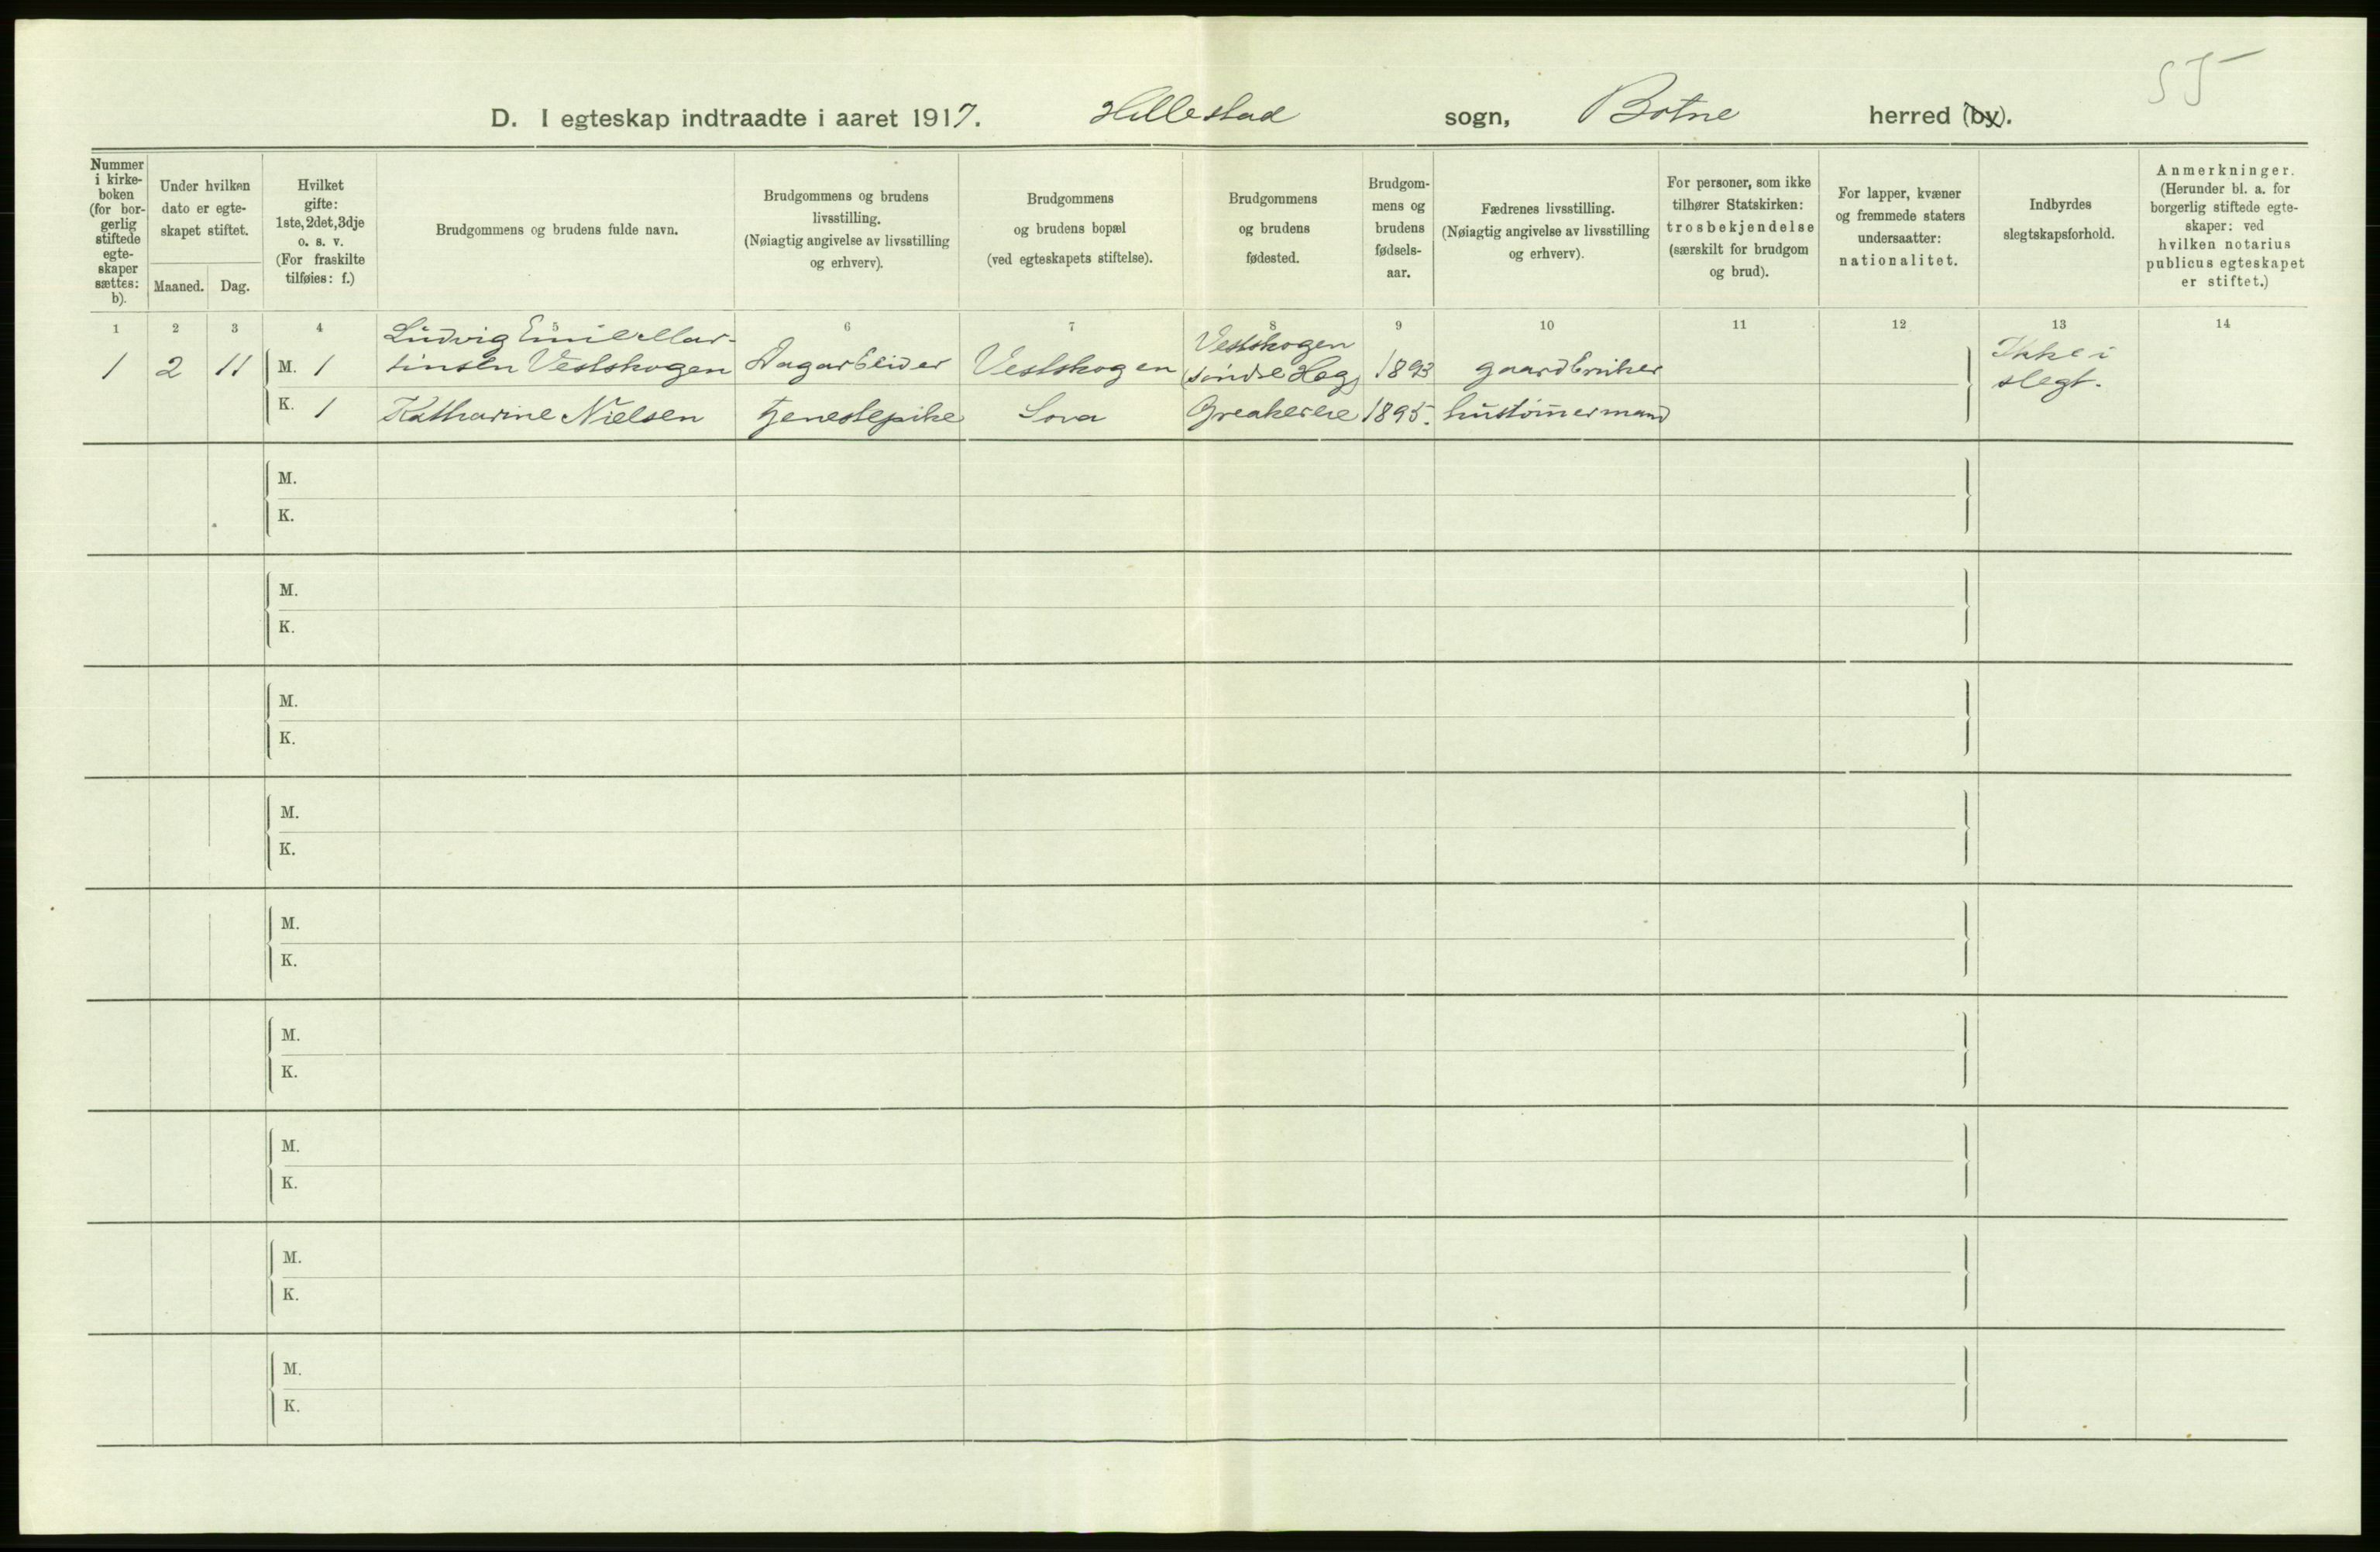 55
D. I egteskap indtraadte i aaret 1917. Hillestad sogn, Botne herred (by).
Nummer i kirkeboken (for borgerlig stiftede egteskaper sættes: b).
Under hvilken dato er egteskapet stiftet.
Maaned. Dag.
Hvilket gifte: 1ste, 2det, 3dje o. s. v. (For fraskilte tilføies: f.)
Brudgommens og brudens fulde navn.
Brudgommens og brudens livsstilling. (Nøiagtig angivelse av livsstilling og erhverv).
Brudgommens og brudens bopæl (ved egteskapets stiftelse).
Brudgommens og brudens fødested.
Brudgommens og brudens fødselsaar.
Fædrenes livsstilling. (Nøiagtig angivelse av livsstilling og erhverv).
For personer, som ikke tilhører Statskirken: trosbekjendelse (særskilt for brudgom og brud).
For lapper, kvæner og fremmede staters undersaatter: nationalitet.
Indbyrdes slegtskapsforhold.
Anmerkninger. (Herunder bl. a. for borgerlig stiftede egteskaper: ved hvilken notarius publicus egteskapet er stiftet.)
1 2 3 4 5 6 7 8 9 10 11 12 13 14
Ludvig Emil Mar- Vestskogen Ikke i
1 2 11 M. 1 tinsen Vestskogen Dagarbeider Vestskogen 1893 gaardbruker slegt.
K. 1 Katharine Nielsen tjenestepike Sora 1895. hustømermand
M.
K.
M.
K.
M.
K.
M.
K.
M.
K.
M.
K.
M.
K.
M.
K.
M.
K.